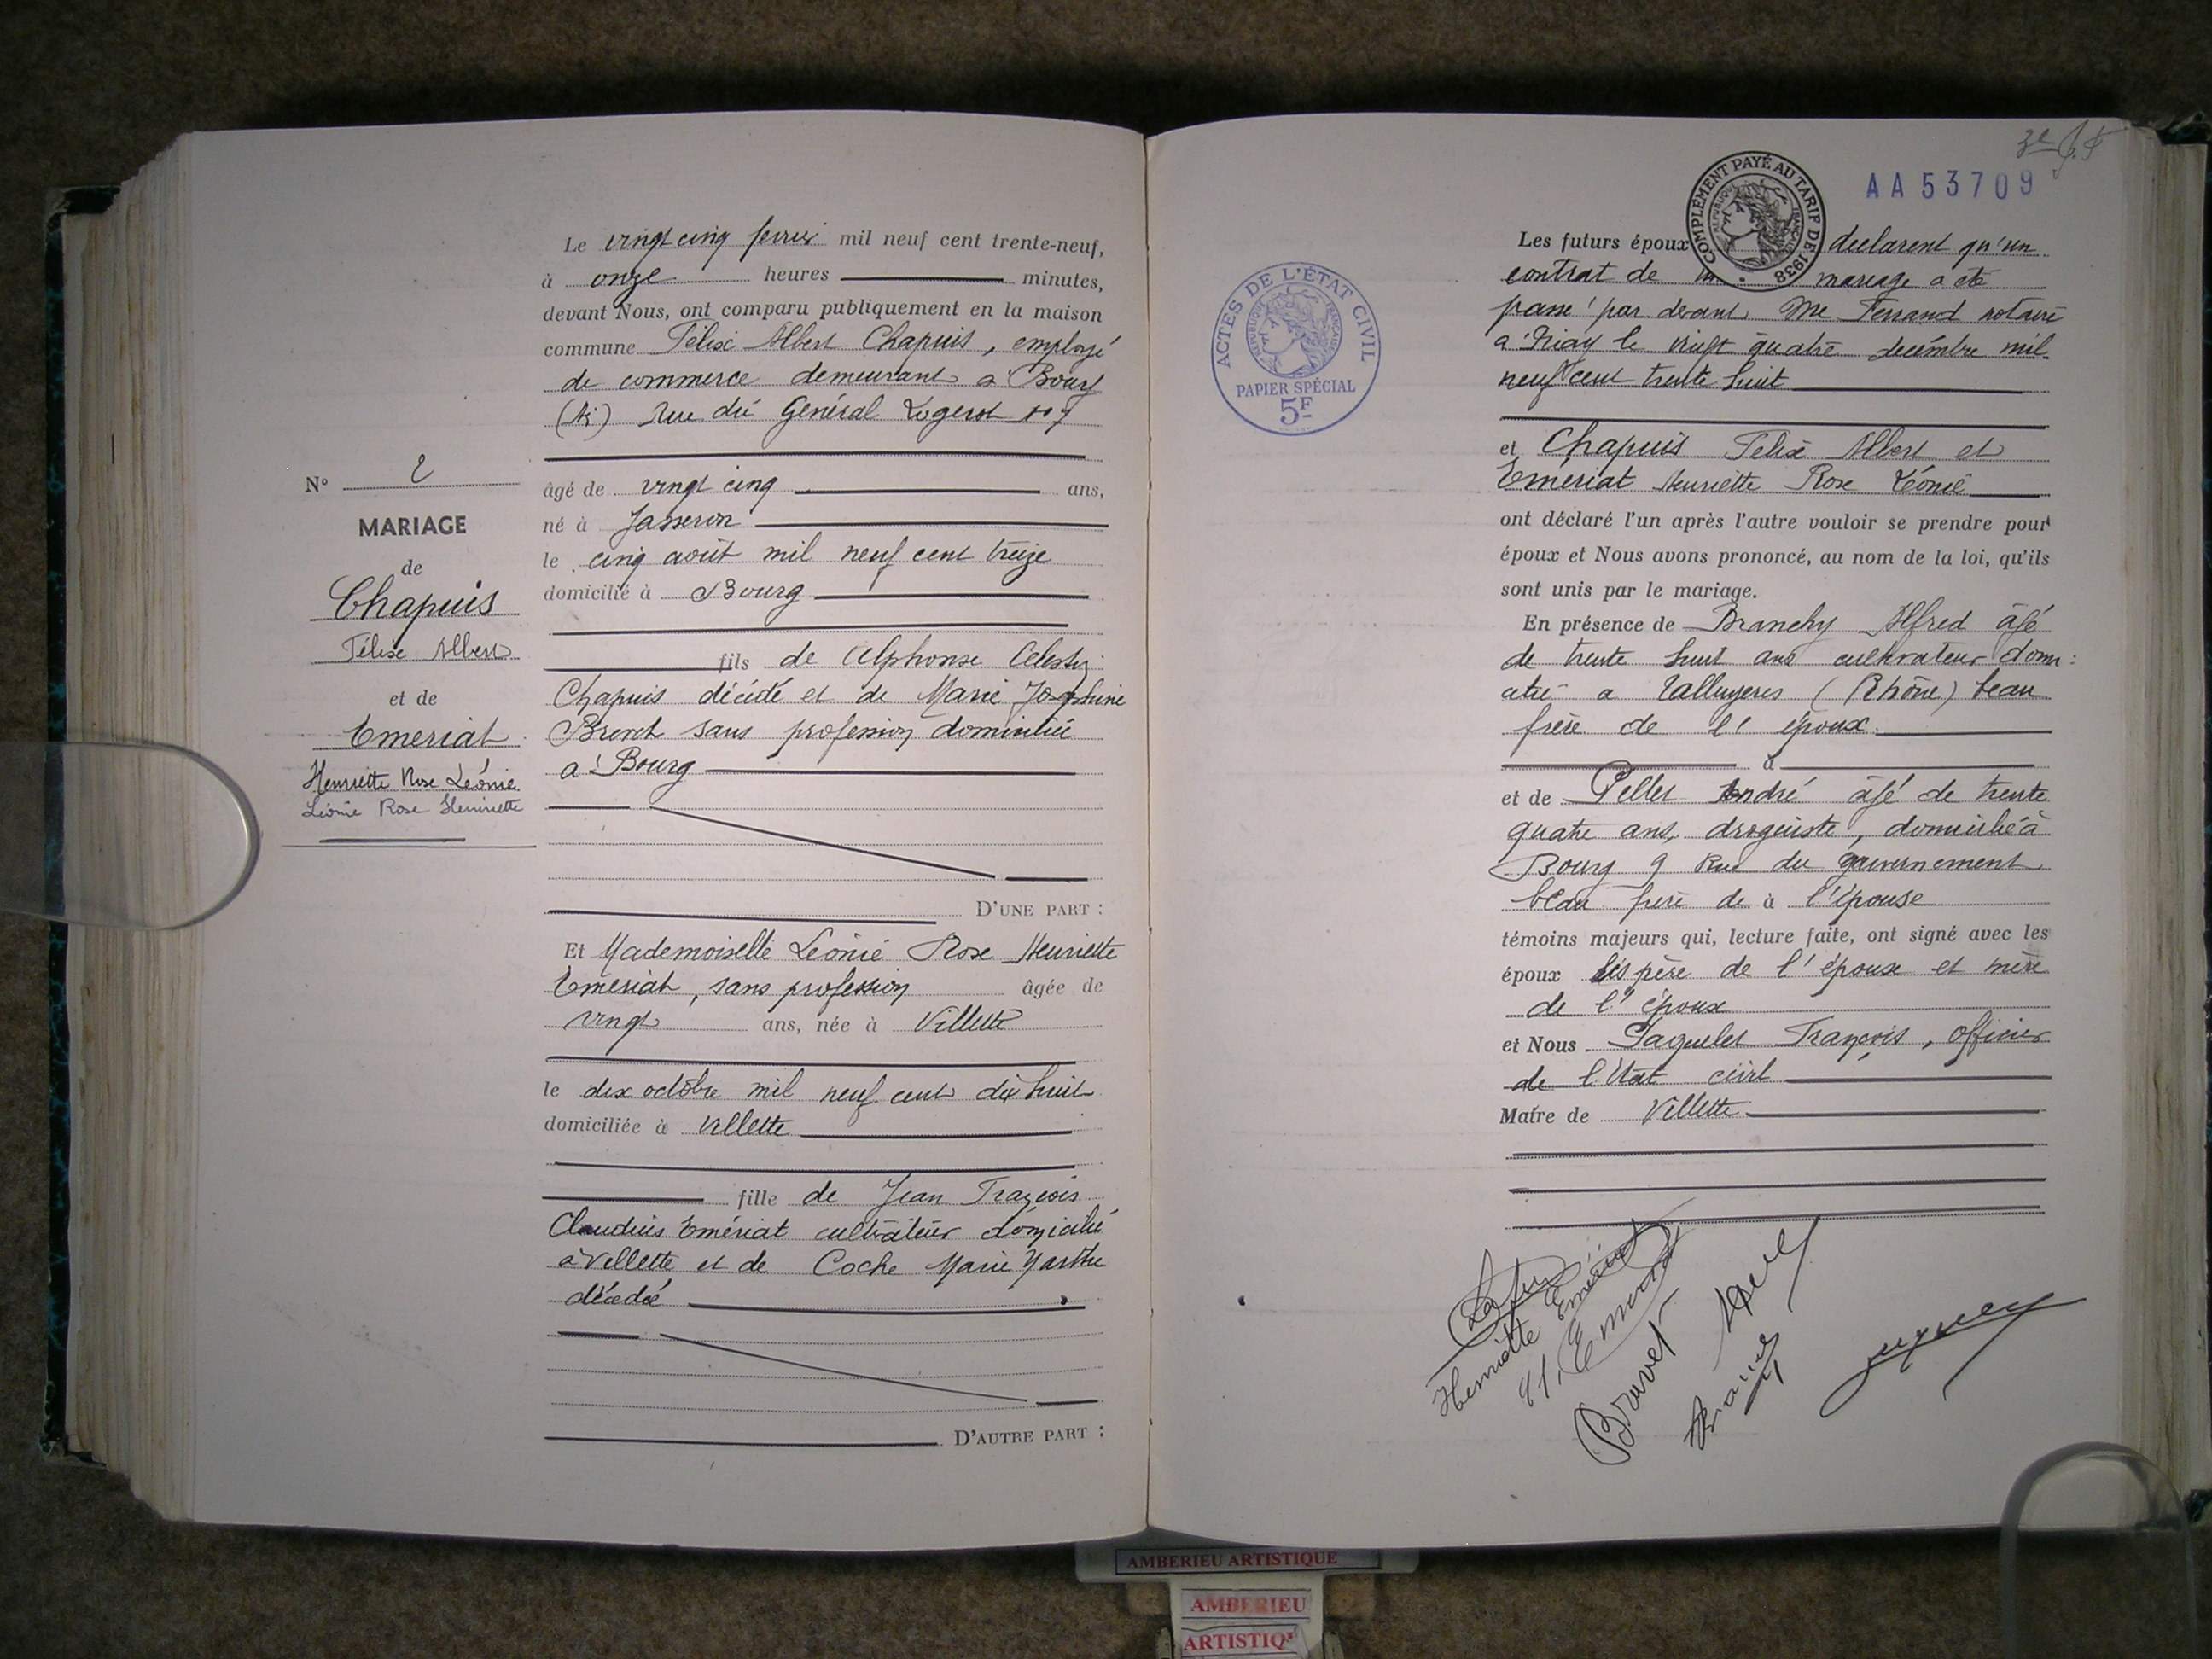 Le vingt cinq février mil neuf cent trente-neuf,
à onze heures minutes,
devant Nous, ont comparu publiquement en la maison
commune Félix Albert Chapuis, employé
de commerce demeurant à Bourg
(Ai) Rue du Général Logerot
N° 2
MARIAGE
de
Chapuis
Félix Albert
et de
Emeriat
Henriette Rose Léonie
Léonie Rose Henriette
âgé de vingt cinq ans,
né à Jasseron
le cinq août mil neuf cent treize
domicilié à Bourg
fils de Alphonse Célestin
Chapuis décédé et de Marie Joséphine
sans profession domiciliée
à Bourg
D'UNE PART :
Et Mademoiselle Léonie Rose Henriette
Emeriat, sans profession âgée de
vingt ans, née à Villette
le dix octobre mil neuf cent dix huit
domiciliée à Villette
fille de Jean François
Claudius Emériat cultivateur domicilié
à Villette et de Coche Marie Marthe
décédée
D'AUTRE PART :
AA53709
COMPLÉMENT PAYÉ AU TARIF DE 1938
RÉPUBLIQUE FRANÇAISE
ACTES DE L'ÉTAT CIVIL
RÉPUBLIQUE FRANÇAISE
PAPIER SPÉCIAL
5F
Les futurs époux déclarent qu'un
contrat de mariage a été
passé par devant Me Ferrand notaire
à Priay le vingt quatre décembre mil
neuf cent trente huit
et Chapuis Félix Albert et
Emériat Henriette Rose Léonie
ont déclaré l'un après l'autre vouloir se prendre pour
époux et Nous avons prononcé, au nom de la loi, qu'ils
sont unis par le mariage.
En présence de Branchy Alfred âgé
de trente huit ans cultivateur domi:
cilié à Talluyers (Rhône) beau
frère de l'époux.
à
et de Pellet André âgé de trente
quatre ans, droguiste, domicilié à
Bourg 9 Rue du gouvernement
beau frère de à l'épouse
témoins majeurs qui, lecture faite, ont signé avec les
époux les père de l'épouse et mère
de l'époux
et Nous Paquelet François, officier
de l'Etat civil
Maire de Villette
Henriette Emériat
AMBERIEU ARTISTIQUE
AMBERIEU
ARTISTIQ